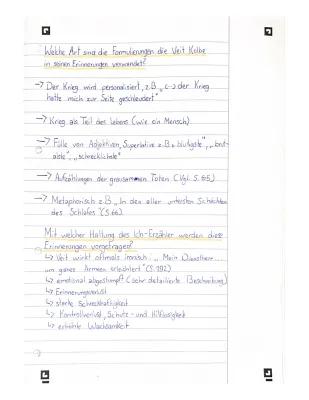 Welche Art sind die Formulierungen die Veit Kolbe
in seinen Erinnerungen verwendet?
→ Der Krieg wird personalisiert, z.B. „(...) der Krieg
hatte mich zur Seite geschleudert"
→ Krieg als Teil des Lebens (wie ein Mensch)
→ Fülle von Adjektiven, Superlative z.B. „blutigste", „brut-
alste", „schrecklichste"
→ Aufzählungen der grausamen Toten (Vgl. S.
→ Metaphorisch z.B. „In den aller untersten Schichten
des Schlafes" (S.66)
Mit welcher Haltung des Ich-Erzähler werden diese
Erinnerungen vorgetragen?
↳ Veit wirkt oftmals ironisch: „Mein Dienstherr...
um ganze Armeen erleichtert" (S.192)
↳ emotional abgestumpft (sehr detailierte Beschreibung)
↳ Erinnerungsverlust
↳ starke Schreckhaftigkeit
↳ Kontrollverlust, Schutz- und Hilflosigkeit
↳ erhöhte Wachsamkeit